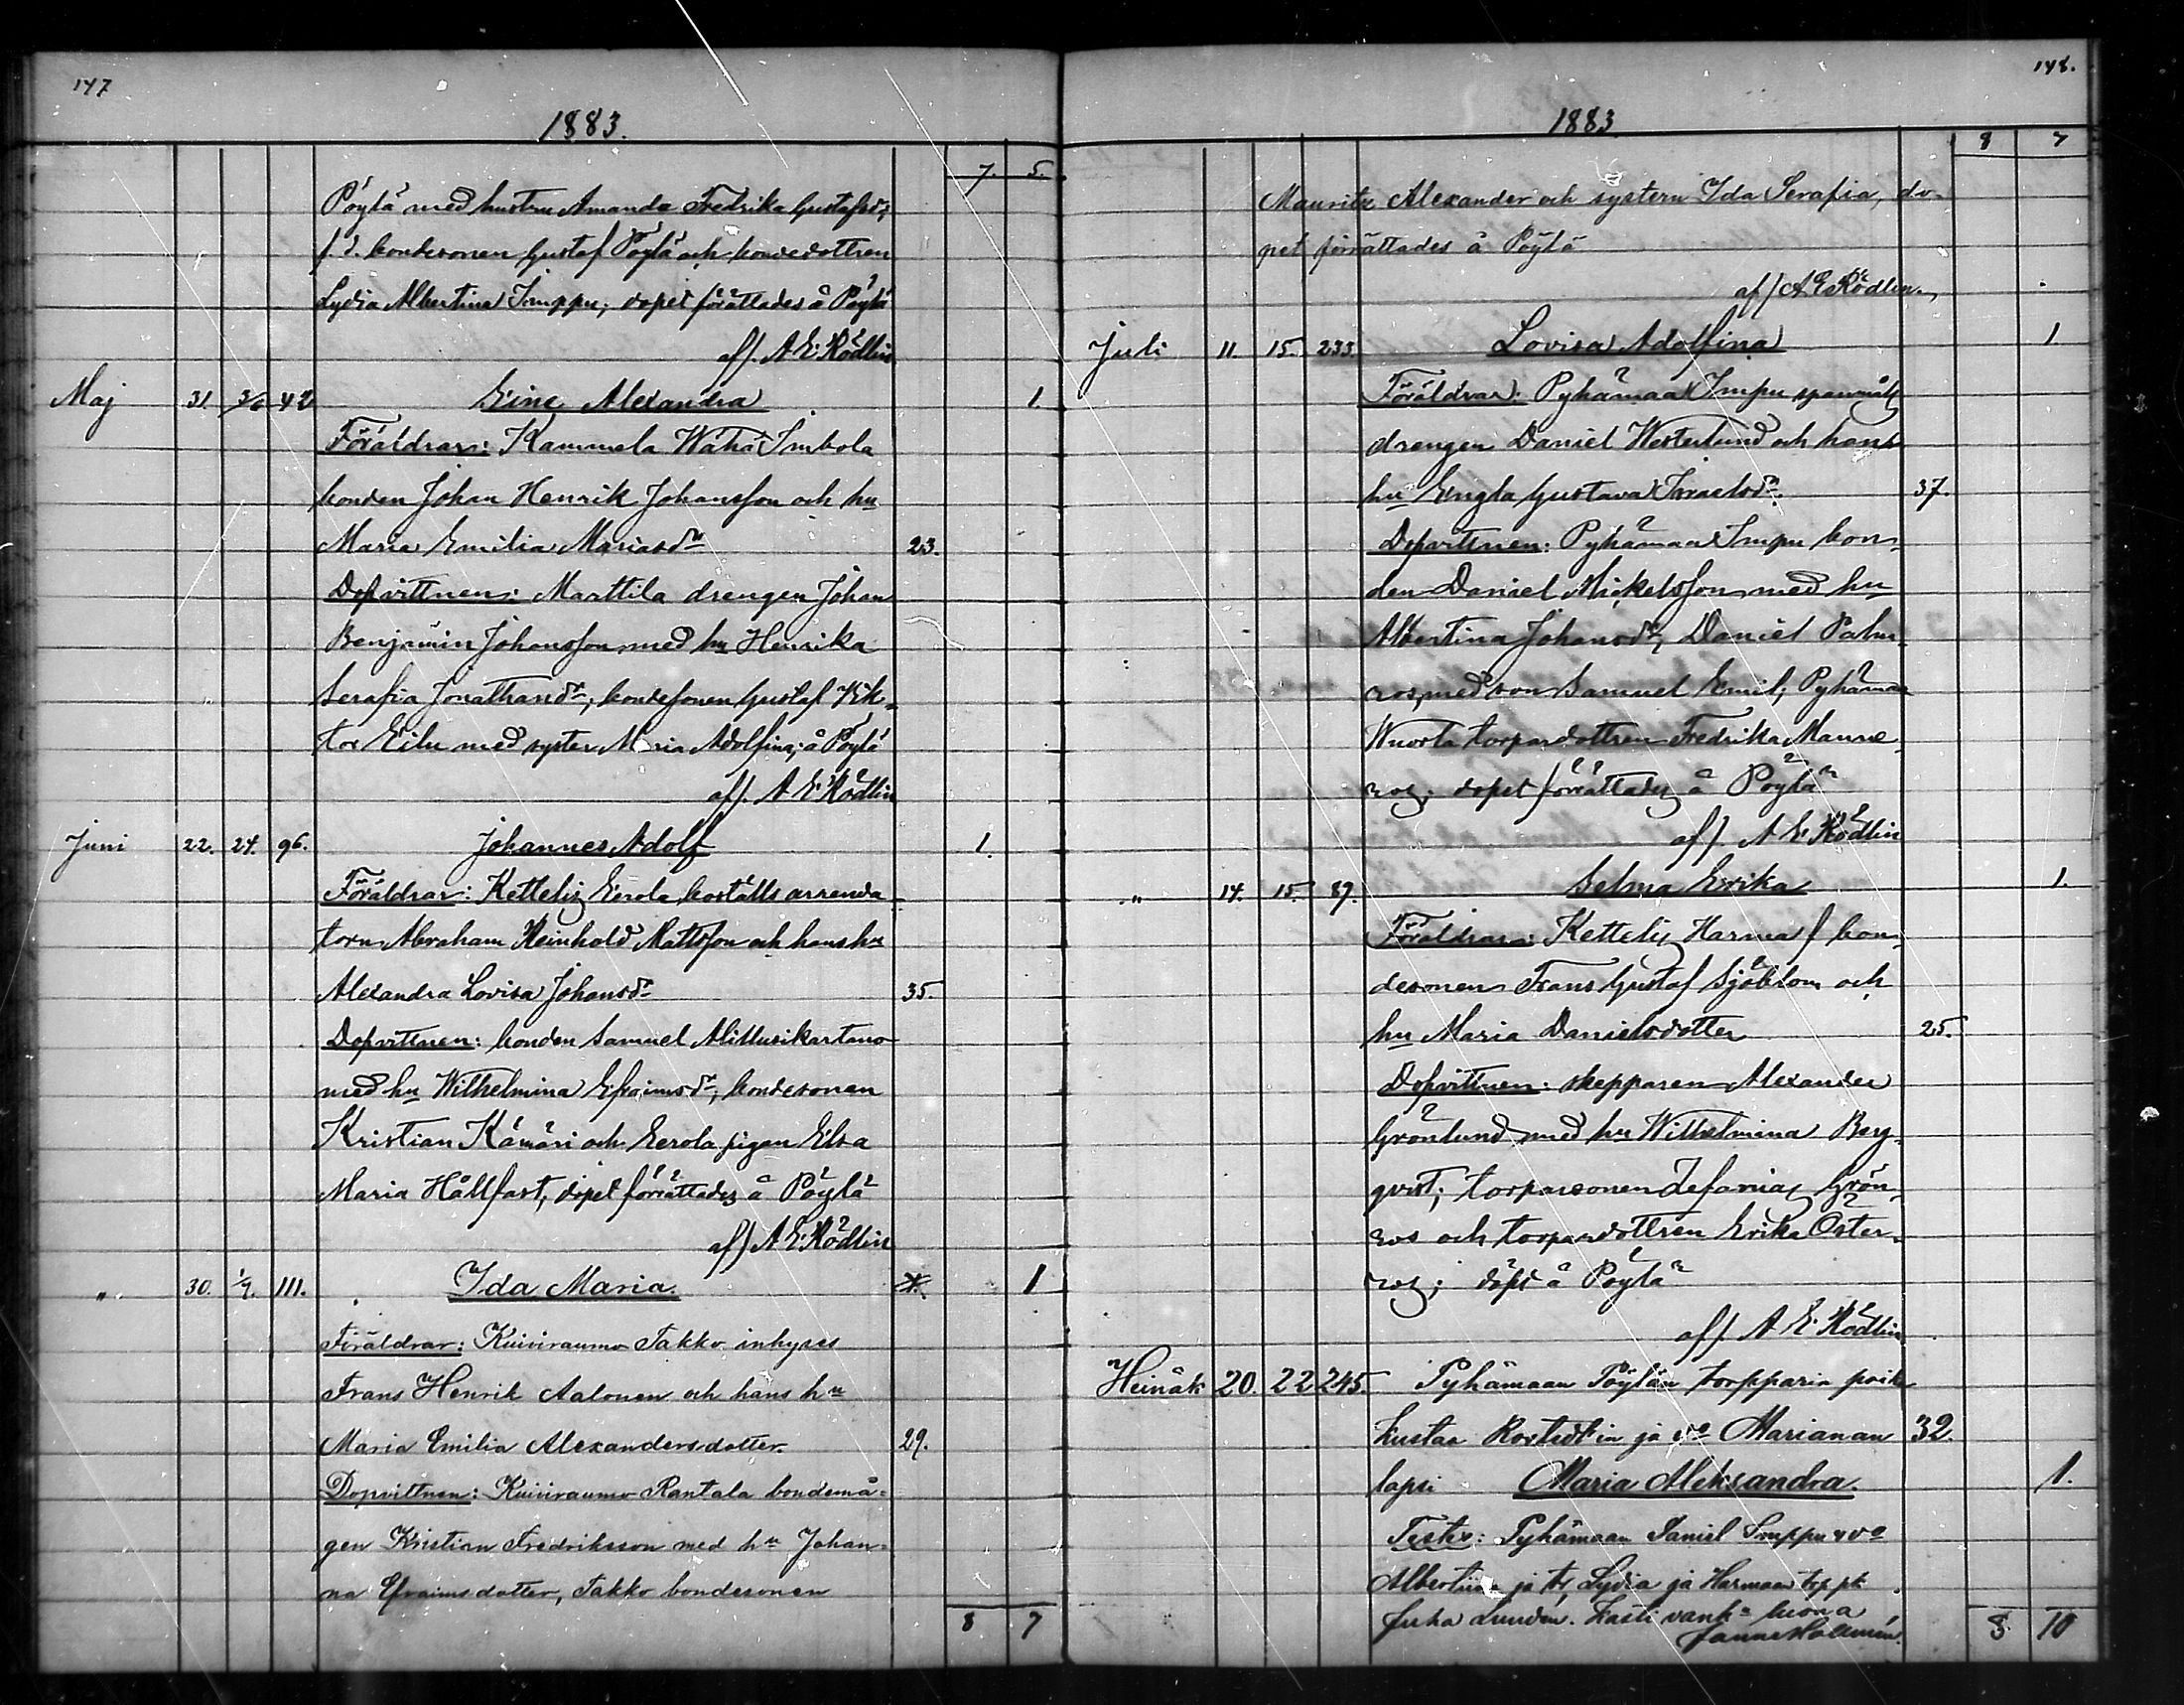 147
1883.
7. 5.
Pöylä med hustru Amanda Fredrika Gustafsdr,
f. d. bondesonen Gustaf Pöylä och bondedottren
Lydia Albertina Imppu; dopet förättades å Pöylä
af/. A E Rödlin
Maj 31. 3/6 42 Eine Alexandra 1.
Föräldrar: Kammela Wähä Imbola
bonden Johan Henrik Johansson och hu
Maria Emilia Mariasdr 23.
Dopvittnen: Marttila drengen Johan
Benjamin Johansson med hu Henrika
Serafia Jonathansdr; bondesonen Gustaf Vik-
tor Eilu med syster Maria Adolfina; å Pöylä
af/. A E Rödlin
Juni 22. 24. 96. Johannes Adolf 1.
Föräldrar: Kettelis Eerola boställs arrenda
torn Abraham Reinhold Mattsson och hans hu
Alexandra Lovisa Johansdr 35.
Dopvittnen: bonden Samuel
med hu Wilhelmina Efraimsdr; bondesonen
Kristian Kämäri och Eerola pigan Elsa
Maria Hållfast, dopet förrättades å Pöylä
af/ A E Rödlin
". 30. 1/7. 111. Ida Maria. 1
Föräldrar: Kuiviraumo Takko inhyses
Frans Henrik Aalonen och hans hu
Maria Emilia Alexandersdotter 29.
Dopvittnen: Kuiviraumo Rantala bondemå-
gen Kristian Fredriksson med hu Johan-
na Efraimsdotter, Takko bondesonen
8 7
148.
1883
8 7
Mauritz Alexander och systern Ida Serafia, do-
pet förrättades å Pöylä
af/ A E Rödlin.
Juli 11. 15. 233. Lovisa Adolfina 1
Föräldrar: Pyhämaa Impu spanmåls
drengen Daniel Westerlund och hans
hu Engla Gustava Israelsdr. 37.
Dopvittnen: Pyhämaa Impu bon-
den Daniel Mickelsson med hu
Albertina Johansdr, Daniel Palm-
ros, med son Samuel Emil; Pyhämaa
Wuorla torpardottren Fredrika Manne
ros; dopet förrättades å Pöylä
af/. A E Rödlin
" 14. 15. 89. Selma Erika 1.
Föräldrar: Kettelis Harma f bon-
desonen Frans Gustaf Sjöblom och
hu Maria Danielsdotter 25.
Dopvittnen: skepparen Alexander
Grönlund med hu Wilhelmina Berg-
qvist; torparsonen Zefanias Grön-
ros och torpardottren Erika Öster-
ros; döpt å Pöylä
af/. A E Rödlin
Heinäk 20. 22 245. Pyhämaan Pöylän torpparin poik
Kustaa in ja vo Marianan 32.
lapsi Maria Aleksandra. 1.
Testes: Pyhämaan Daniel Imppu & vo
Albertiina ja tr, Lydia ja Harmaan
Juha Lunden. Kasti vanh luona
8 10